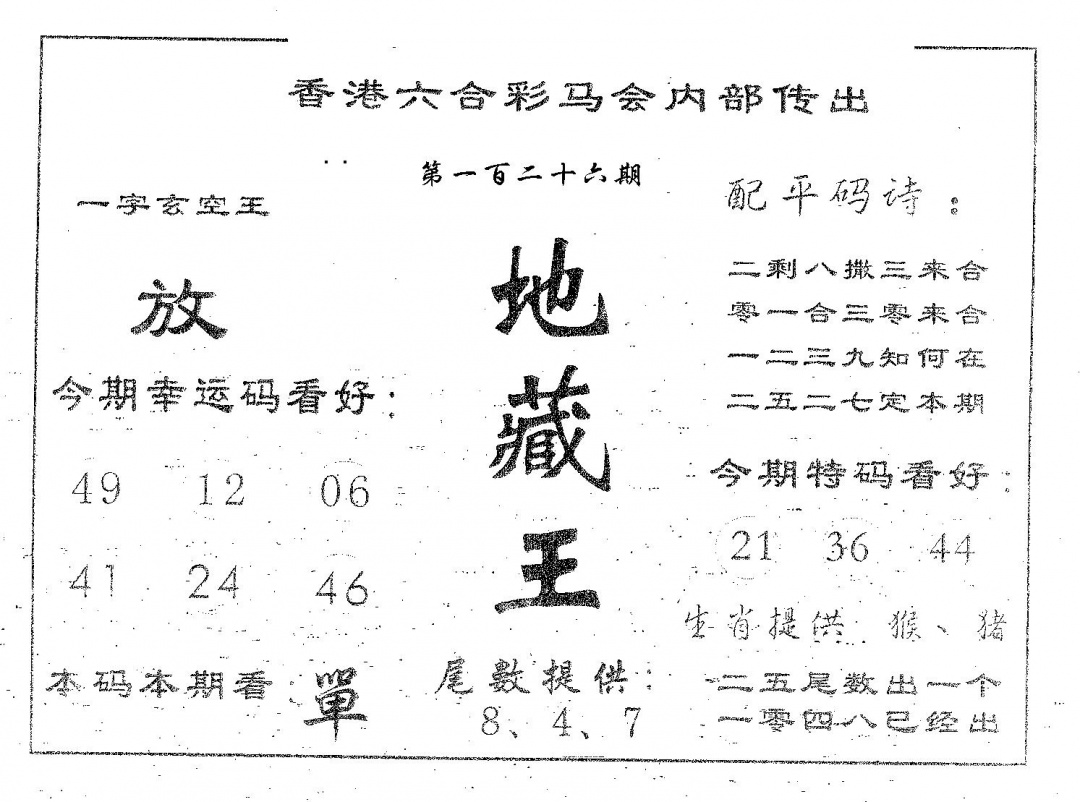 香港六合彩马会内部传出
第一百二十六期
一字玄空王
放
今期幸运码看好:
49 12 06
41 24 46
本码本期看: 單
地藏王
尾數提供:
8、4、7
配平码诗:
二剩八撒三来合
零一合三零来合
一二三九知何在
二五二七定本期
今期特码看好:
21 36 44
生肖提供: 猴、猪
二五尾数出一个
一零四八已经出